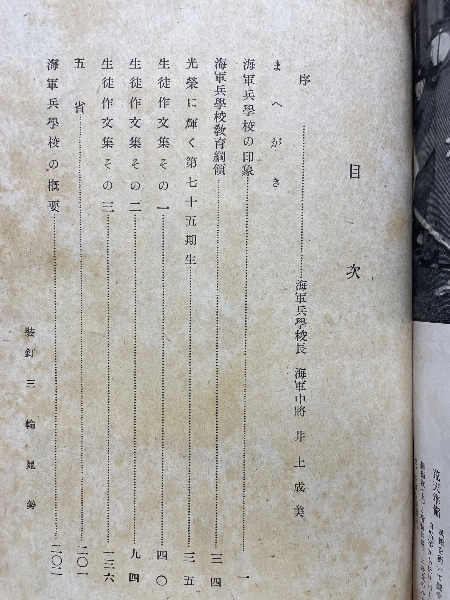 目次
序……………海軍兵學校長 海軍中將 井上成美
まへがき
海軍兵學校の印象……………一
海軍兵學校敎育綱領……………三四
光榮に輝く第七十五期生……………三五
生徒作文集その一……………四〇
生徒作文集その二……………九四
生徒作文集その三……………一三六
五省……………二〇一
海軍兵學校の槪要……………二〇二
裝釘 三輪晁勢